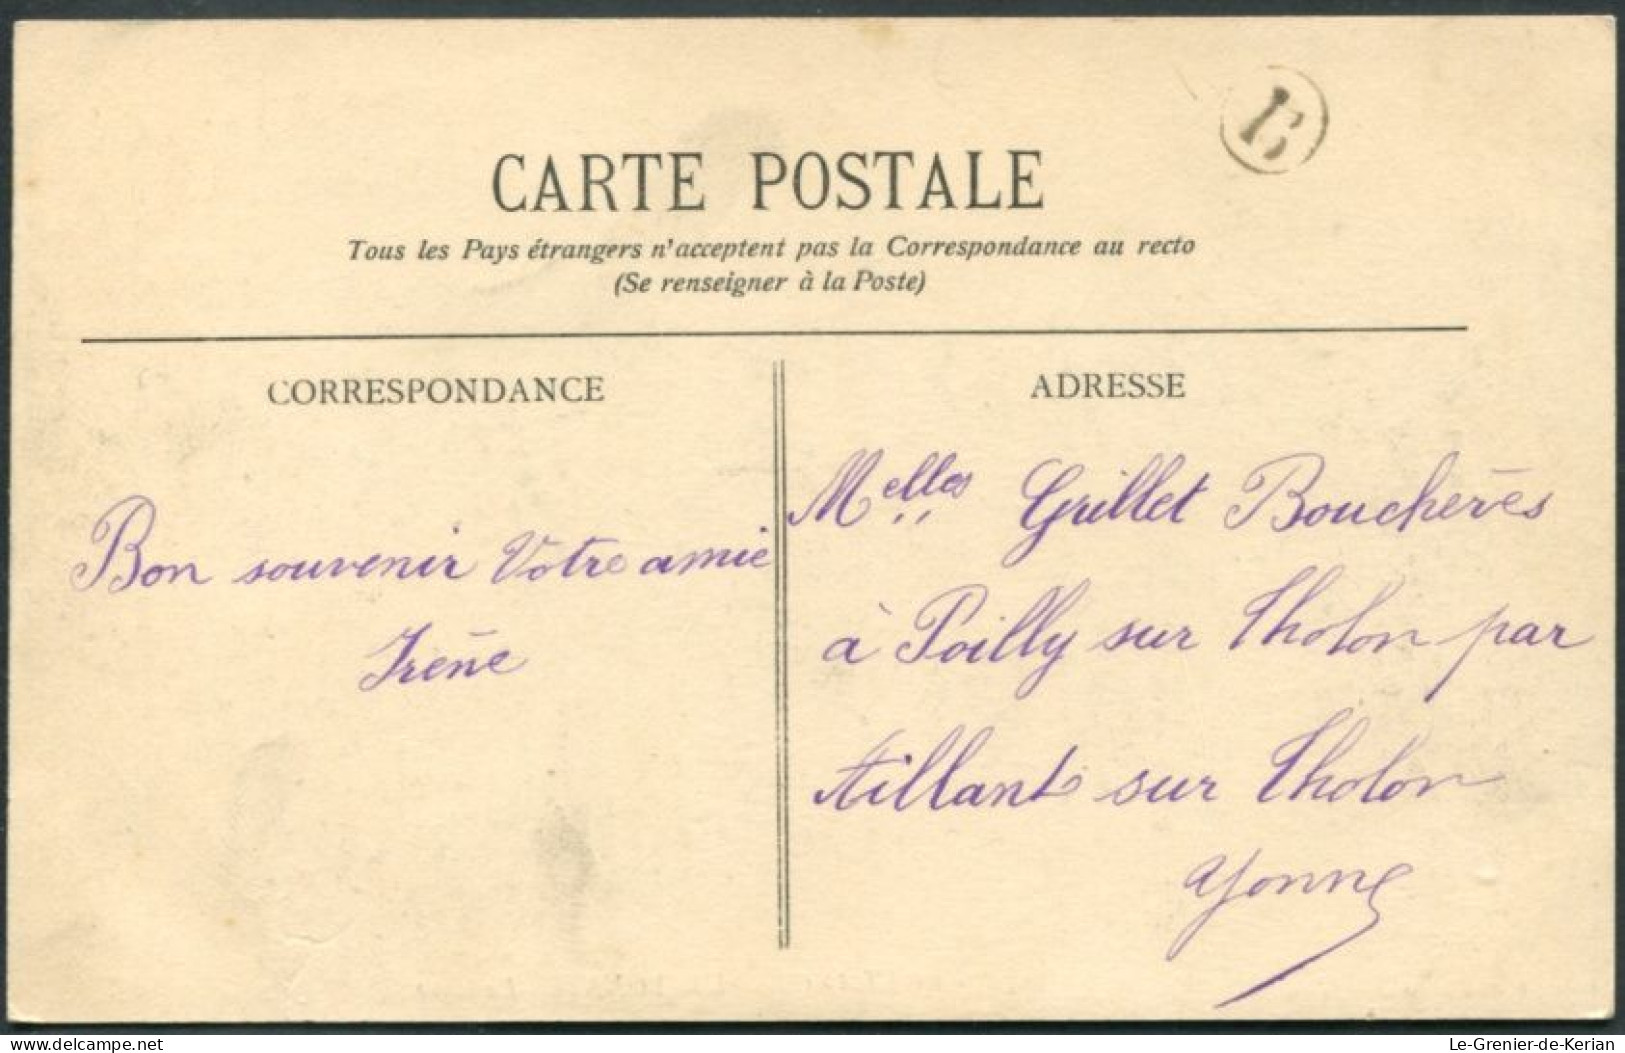 E
CARTE POSTALE
Tous les Pays étrangers n'acceptent pas la Correspondance au recto
(Se renseigner à la Poste)
CORRESPONDANCE
Bon souvenir Votre amie
Irène
ADRESSE
Melles Grillet Bouchères
à Poilly sur Tholon par
Aillant sur Tholon
Yonne
Le-Grenier-de-Kerian
delcampe.net